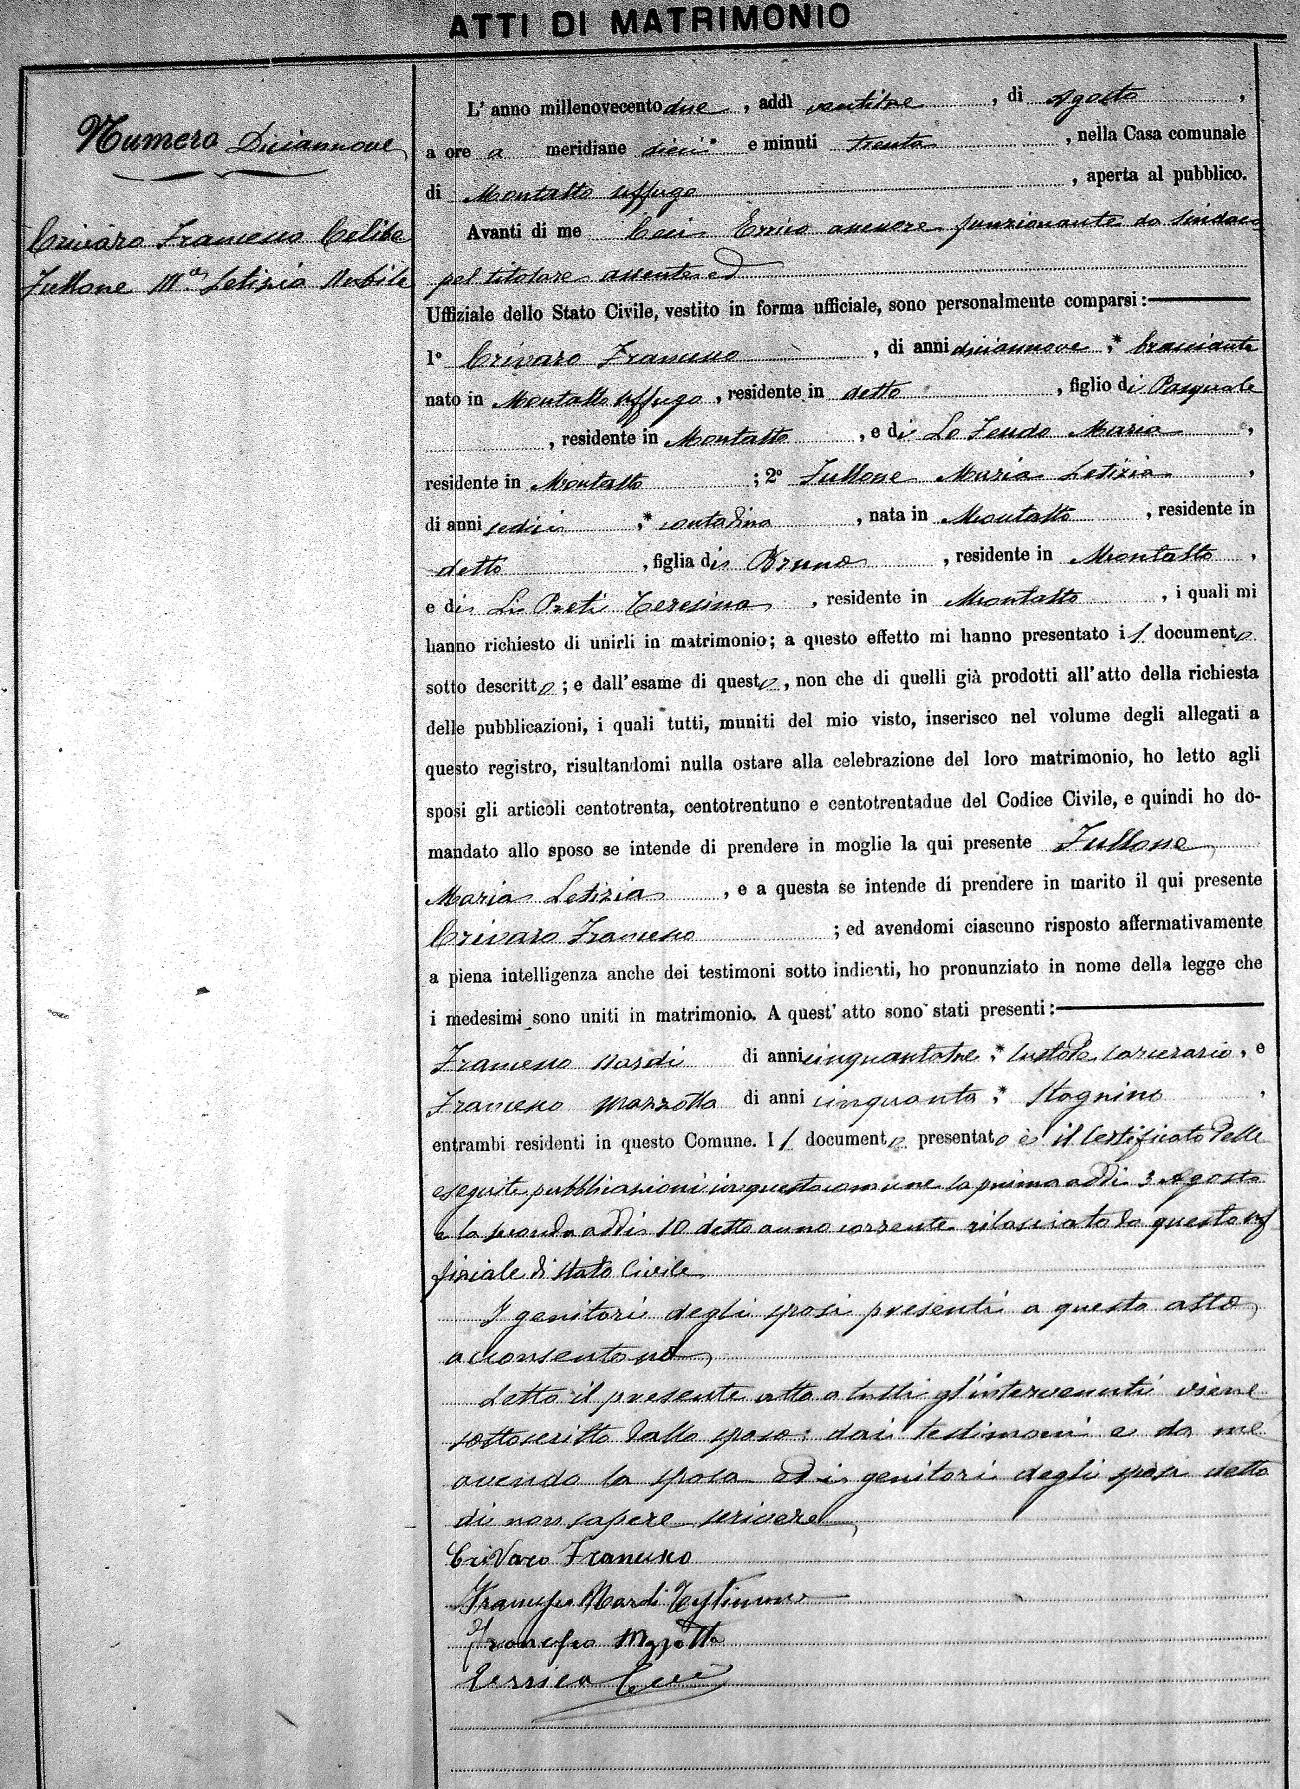 ATTI DI MATRIMONIO
Numero Diciannove
Crivaro Francesco Celibe
Fullone Mª Letizia Nubile
L' anno millenovecento due, addì ventitre, di Agosto,
a ore a meridiane dieci e minuti trenta, nella Casa comunale
di Montalto Uffugo, aperta al pubblico.
Avanti di me Ceci Errico assessore funzionante da sindaco
pel titolare assente ed
Uffiziale dello Stato Civile, vestito in forma ufficiale, sono personalmente comparsi:
1º Crivaro Francesco, di anni diciannove,* bracciante
nato in Montalto Uffugo, residente in detto, figlio di Pasquale
, residente in Montalto, e di Lo Feudo Maria,
residente in Montalto; 2º Fullone Maria Letizia,
di anni sedici,* contadina, nata in Montalto, residente in
detto, figlia di Bruno, residente in Montalto,
e di Li Preti Teresina, residente in Montalto, i quali mi
hanno richiesto di unirli in matrimonio; a questo effetto mi hanno presentato il documento
sotto descritto; e dall'esame di questo, non che di quelli già prodotti all'atto della richiesta
delle pubblicazioni, i quali tutti, muniti del mio visto, inserisco nel volume degli allegati a
questo registro, risultandomi nulla ostare alla celebrazione del loro matrimonio, ho letto agli
sposi gli articoli centotrenta, centotrentuno e centotrentadue del Codice Civile, e quindi ho do-
mandato allo sposo se intende di prendere in moglie la qui presente Fullone
Maria Letizia, e a questa se intende di prendere in marito il qui presente
Crivaro Francesco; ed avendomi ciascuno risposto affermativamente
a piena intelligenza anche dei testimoni sotto indicati, ho pronunziato in nome della legge che
i medesimi sono uniti in matrimonio. A quest' atto sono stati presenti:
Francesco Nardi di anni cinquantatre,* Custode Carcerario, e
Francesco Mazzotta di anni cinquanta,* Stagnino,
entrambi residenti in questo Comune. Il documento presentato è il Certificato delle
eseguite pubblicazioni in questo comune la prima addì 3 Agosto
e la seconda addì 10 detto anno corrente rilasciato da questo Uf
fiziale di Stato Civile
I genitori degli sposi presenti a questo atto,
acconsentono
Letto il presente atto a tutti gl'intervenuti viene
sottoscritto dallo sposo: dai testimoni e da me
avendo la sposa ed i genitori degli sposi detto
di non sapere scrivere
Crivaro Francesco
Francesco Nardi Testimone
Francesco Mazzotta
Errico Ceci